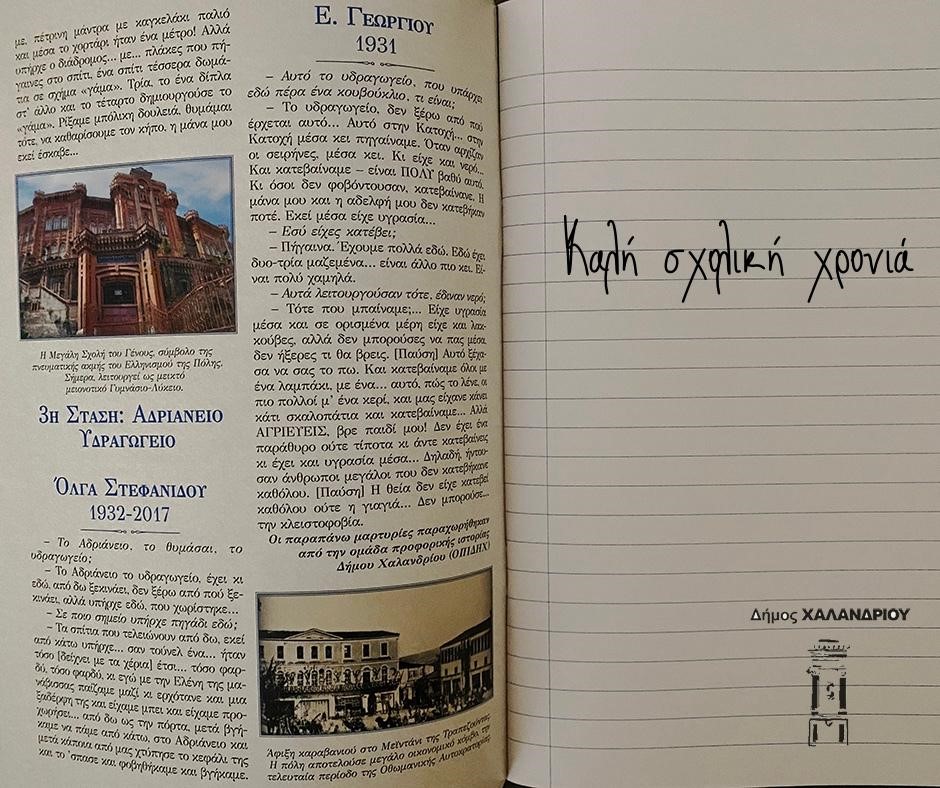 με, πέτρινη μάντρα με καγκελάκι παλιό
και μέσα το χορτάρι ήταν ένα μέτρο! Αλλά
υπήρχε ο διάδρομος... με... πλάκες που πή-
γαινες στο σπίτι, ένα σπίτι τέσσερα δωμά-
τια σε σχήμα «γάμα». Τρία, το ένα δίπλα
στ' άλλο και το τέταρτο δημιουργούσε το
«γάμα». Ρίξαμε μπόλικη δουλειά, θυμάμαι
τότε, να καθαρίσουμε τον κήπο, η μάνα μου
εκεί έσκαβε...
Η Μεγάλη Σχολή του Γένους, σύμβολο της
πνευματικής ακμής του Ελληνισμού της Πόλης.
Σήμερα, λειτουργεί ως μεικτό
μειονοτικό Γυμνάσιο-Λύκειο.
3η Στάση: Αδριάνειο
Υδραγωγείο
Όλγα Στεφανίδου
1932-2017
– Το Αδριάνειο, το θυμάσαι, το
υδραγωγείο;
– Το Αδριάνειο το υδραγωγείο, έχει κι
εδώ, από δω ξεκινάει, δεν ξέρω από πού ξε-
κινάει, αλλά υπήρχε εδώ, που χωρίστηκε...
– Σε ποιο σημείο υπήρχε πηγάδι εδώ;
– Τα σπίτια που τελειώνουν από δω, εκεί
από κάτω υπήρχε... σαν τούνελ ένα... ήταν
τόσο [δείχνει με τα χέρια] έτσι... τόσο φαρ-
δύ, τόσο φαρδύ, κι εγώ με την Ελένη της μα-
νάβισσας παίζαμε μαζί κι ερχότανε και μια
ξαδέρφη της και είχαμε μπει και είχαμε προ-
χωρήσει... από δω ως την πόρτα, μετά βγή-
καμε να πάμε από κάτω, στο Αδριάνειο και
μετά κάποια από μας χτύπησε το κεφάλι της
και το 'σπασε και φοβηθήκαμε και βγήκαμε.
Ε. Γεωργίου
1931
– Αυτό το υδραγωγείο, που υπάρχει
εδώ πέρα ένα κουβούκλιο, τι είναι;
– Το υδραγωγείο, δεν ξέρω από πού
έρχεται αυτό... Αυτό στην Κατοχή... στην
Κατοχή μέσα κει πηγαίναμε. Όταν αρχίζαν
οι σειρήνες, μέσα κει. Κι είχε και νερό...
Και κατεβαίναμε – είναι ΠΟΛΥ βαθύ αυτό.
Κι όσοι δεν φοβόντουσαν, κατεβαίνανε. Η
μάνα μου και η αδελφή μου δεν κατεβήκαν
ποτέ. Εκεί μέσα είχε υγρασία...
– Εσύ είχες κατέβει;
– Πήγαινα. Έχουμε πολλά εδώ. Εδώ έχει
δυο-τρία μαζεμένα... είναι άλλο πιο κει. Εί-
ναι πολύ χαμηλά.
– Αυτά λειτουργούσαν τότε, έδιναν νερό;
– Τότε που μπαίναμε;... Είχε υγρασία
μέσα και σε ορισμένα μέρη είχε και λακ-
κούβες, αλλά δεν μπορούσες να πας μέσα,
δεν ήξερες τι θα βρεις. [Παύση] Αυτό ξέχα-
σα να σας το πω. Και κατεβαίναμε όλοι με
ένα λαμπάκι, με ένα... αυτό, πώς το λένε, οι
πιο πολλοί μ' ένα κερί, και μας είχανε κάνει
κάτι σκαλοπάτια και κατεβαίναμε... Αλλά
ΑΓΡΙΕΥΕΙΣ, βρε παιδί μου! Δεν έχει ένα
παράθυρο ούτε τίποτα κι άντε κατεβαίνεις
κι έχει και υγρασία μέσα... Δηλαδή, ήντου-
σαν άνθρωποι μεγάλοι που δεν κατεβήκανε
καθόλου. [Παύση] Η θεία δεν είχε κατεβεί
καθόλου ούτε η γιαγιά... Δεν μπορούσε...
την κλειστοφοβία.
Οι παραπάνω μαρτυρίες παραχωρήθηκαν
από την ομάδα προφορικής ιστορίας
Δήμου Χαλανδρίου (ΟΠΙΔΗΧ)
Άφιξη καραβανιού στο Μεϊντάνι της Τραπεζούντας.
Η πόλη αποτελούσε μεγάλο οικονομικό κόμβο, την
τελευταία περίοδο της Οθωμανικής Αυτοκρατορίας.
Καλή σχολική χρονιά
Δήμος ΧΑΛΑΝΔΡΙΟΥ